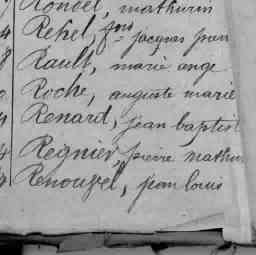 Rondel, mathurin
Rehel, fois jacques jean
Rault, marie ange
Roche, auguste marie
Renard, jean baptist
Regnier, pierre mathur
Renouvel, jean louis